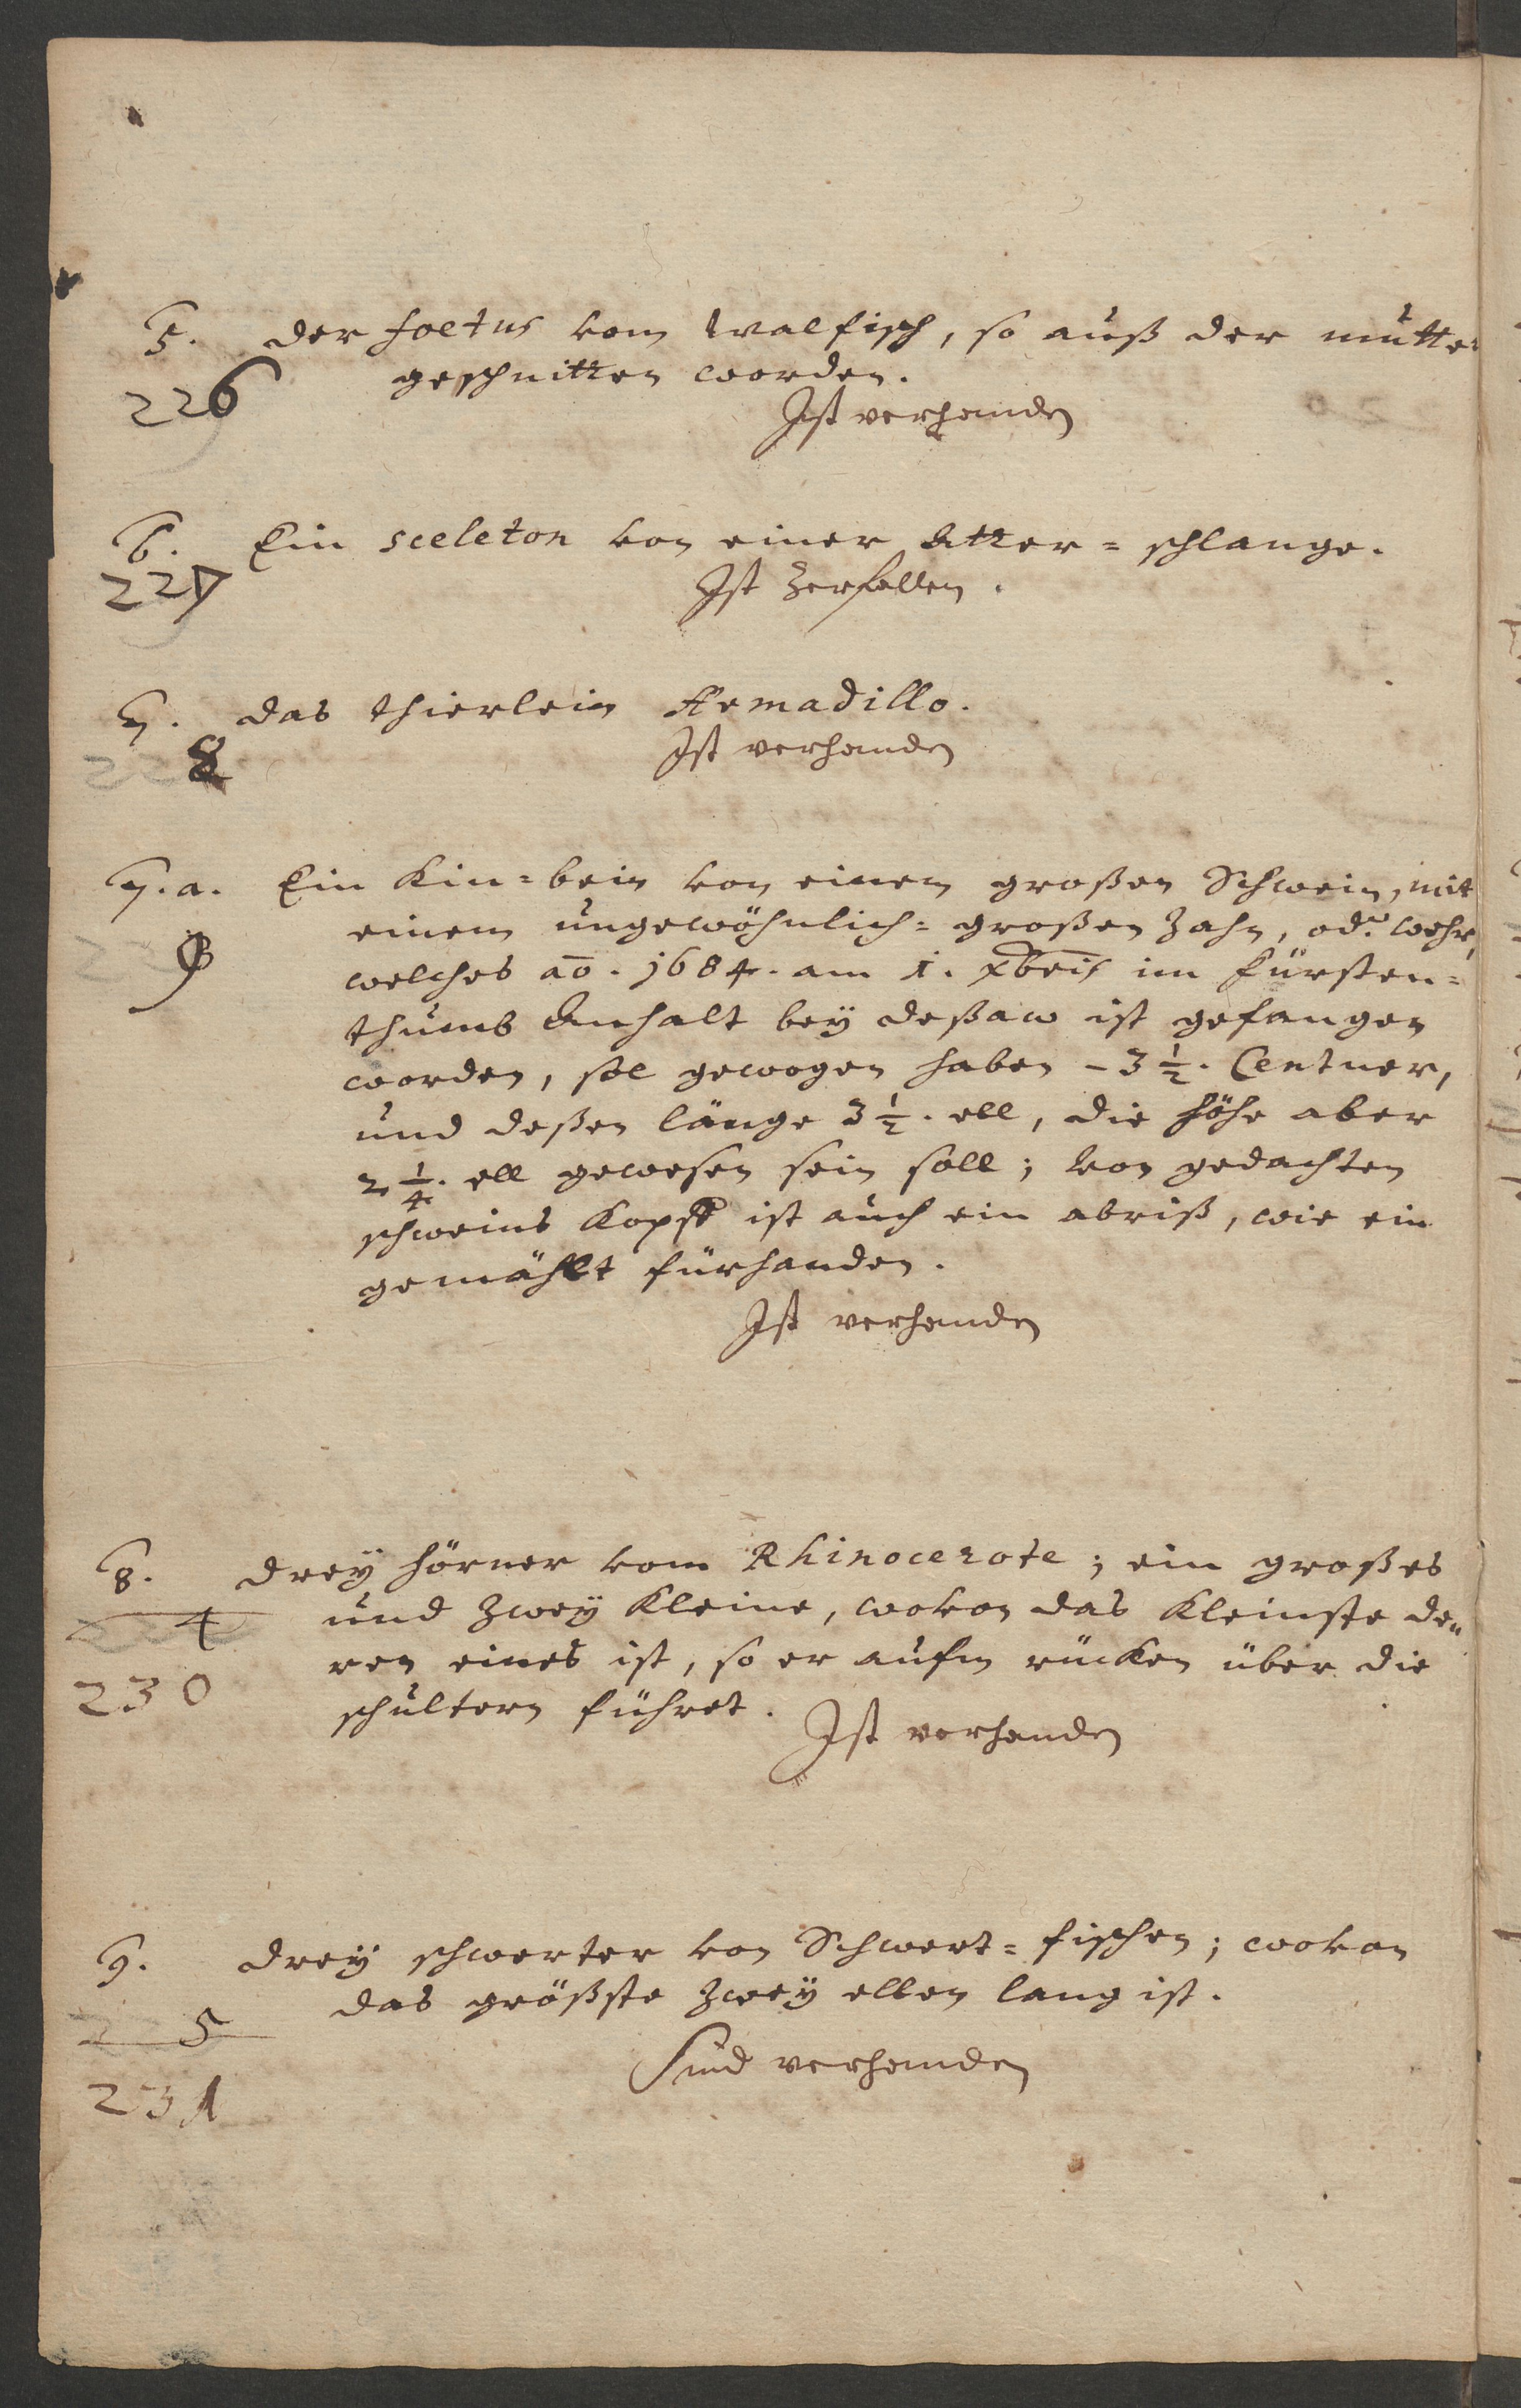 5. der foetus vom Walfisch, so auß der mutter
226 geschnitten worden.
Ist verhanden
6. Ein sceleton von einer Atter=schlange.
227 Ist Zerfallen.
7. das thierlein Armadillo.
228 Ist verhanden
7.a. Ein Kin=bein von einem großen Schwein, mit
9 einem ungewöhnlich=großen Zahn, od. wehr,
welches ao. 1684. am 1. xbris im Fürsten=
thumb Anhalt bey deßaw ist gefangen
worden, sol gewogen haben - 3 1/2. Centner,
und deßen länge 3 1/2. ell, die höhe aber
2 1/4. ell gewesen sein soll; von gedachten
schweins Kopff ist auch ein abriß, wie ein
gemählt fürhanden.
Ist verhanden
8. drey hörner vom Rhinocerote; ein großes
4 und Zwey Kleine, wovon das Kleinste de„
230 ren eines ist, so er aufm rücken über die
schultern führet.
Ist verhanden
9. drey schwerter von Schwert=fischen; wovon
5 das größste Zwey ellen lang ist.
Sind verhanden
231